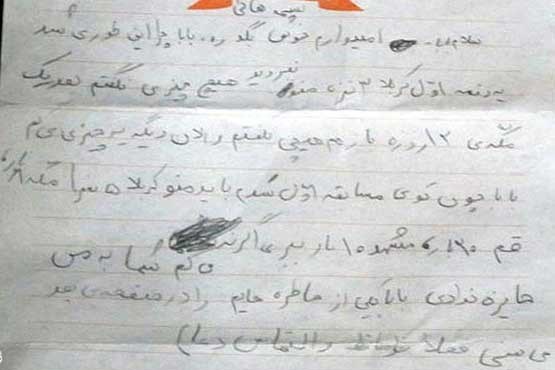 سلام بابا. امیدوارم خوش بگذره. بابا چرا این طوری شد
یه دفعه اوّل کربلا ۳ نفره منو نبردید هیچ چیزی نگفتم بعد یک
مکّه‌ی ۱۲ روزه باز هم هیچی نگفتم والان دیگه یه چیزی می‌گم
بابا چون توی مسابقه اوّل شدم باید منو کربلا ۵ مکّه
قم ۲۶۰ مشهد ۱۰ بار ببری اگر نه
می‌گم شما به من
جایزه ندادی بابا یکی از خاطره هایم را در صفحه‌ی بعد
می‌بینی فعلاً خداحافظ والتماس دعا)